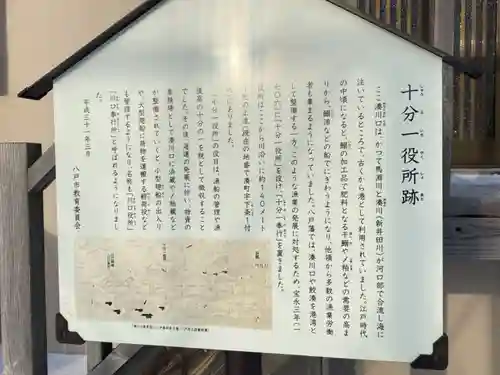 十分一役所跡
ここ湊川口は、かつて馬淵川と湊川(新井田川)が河口部で合流し海に
注いでいるところで、古くから港として利用されていました。江戸時代
の中頃になると、鰯の加工品で肥料となる干鰯や〆粕などの需要の高ま
りから、鰯漁などの船でにぎわうようになり、他領から多数の漁業労働
者も集まるようになっていました。八戸藩では、湊川口や鮫湊を港湾と
して整備する一方、このような漁業の発展に対処するため、宝永三年(一
七〇六)に「十分一役所」を設け、「十分一奉行」を置きました。
役所はここから川沿いに約140メート
「十分一役所」の役目は、漁船の管理や漁
獲高の十分の一を税として徴収すること
でした。その後、海運の発展に伴い、物資の
集積港として湊川口に浜蔵や〆粕蔵など
が整備されていくと、小型廻船の出入り
や、大型廻船に荷物を運搬する艀荷役など
も管理するようになり、名称も「川口役所」
「川口奉行所」と呼ばれるようになりまし
た。
平成三十一年三月
八戸市教育委員会